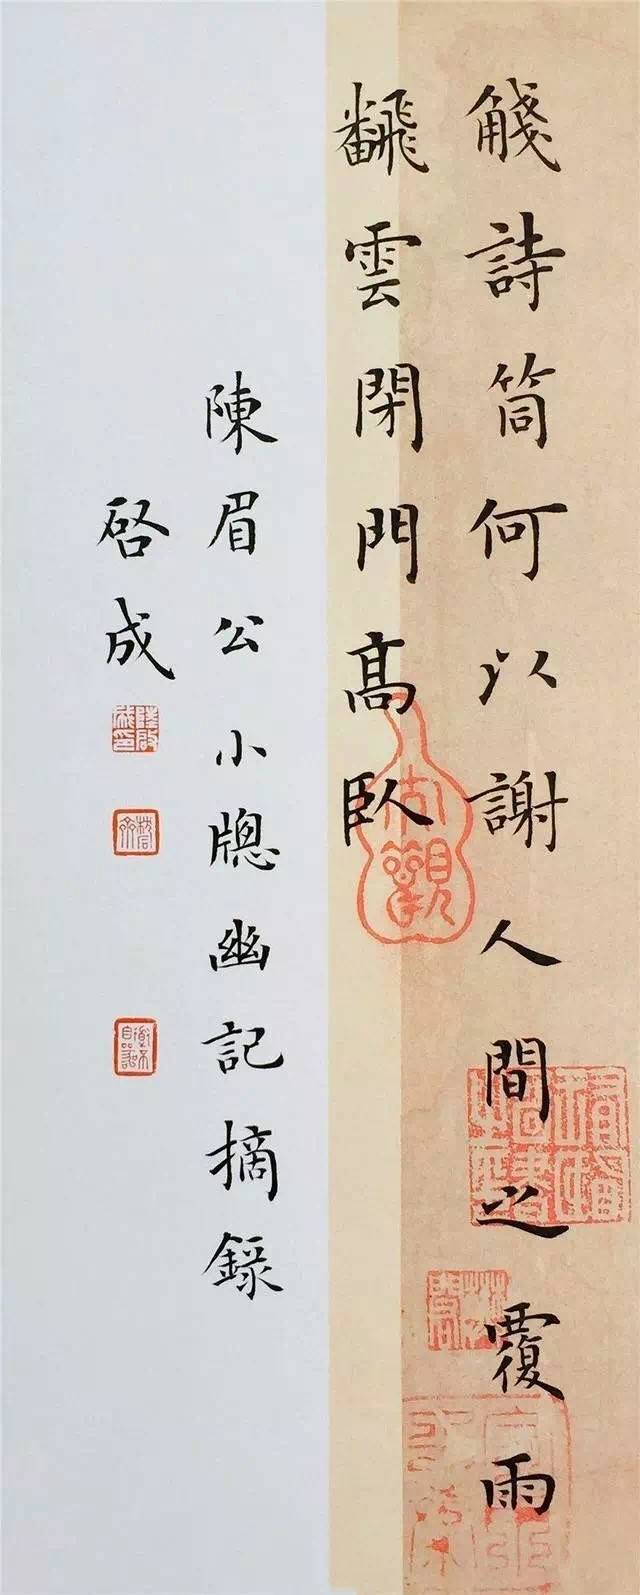 詩筒何以謝人間之覆雨
飜雲閇門髙臥
陳眉公小牕幽記摘錄
啓成